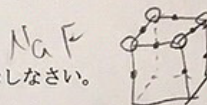 NaF
しなさい。